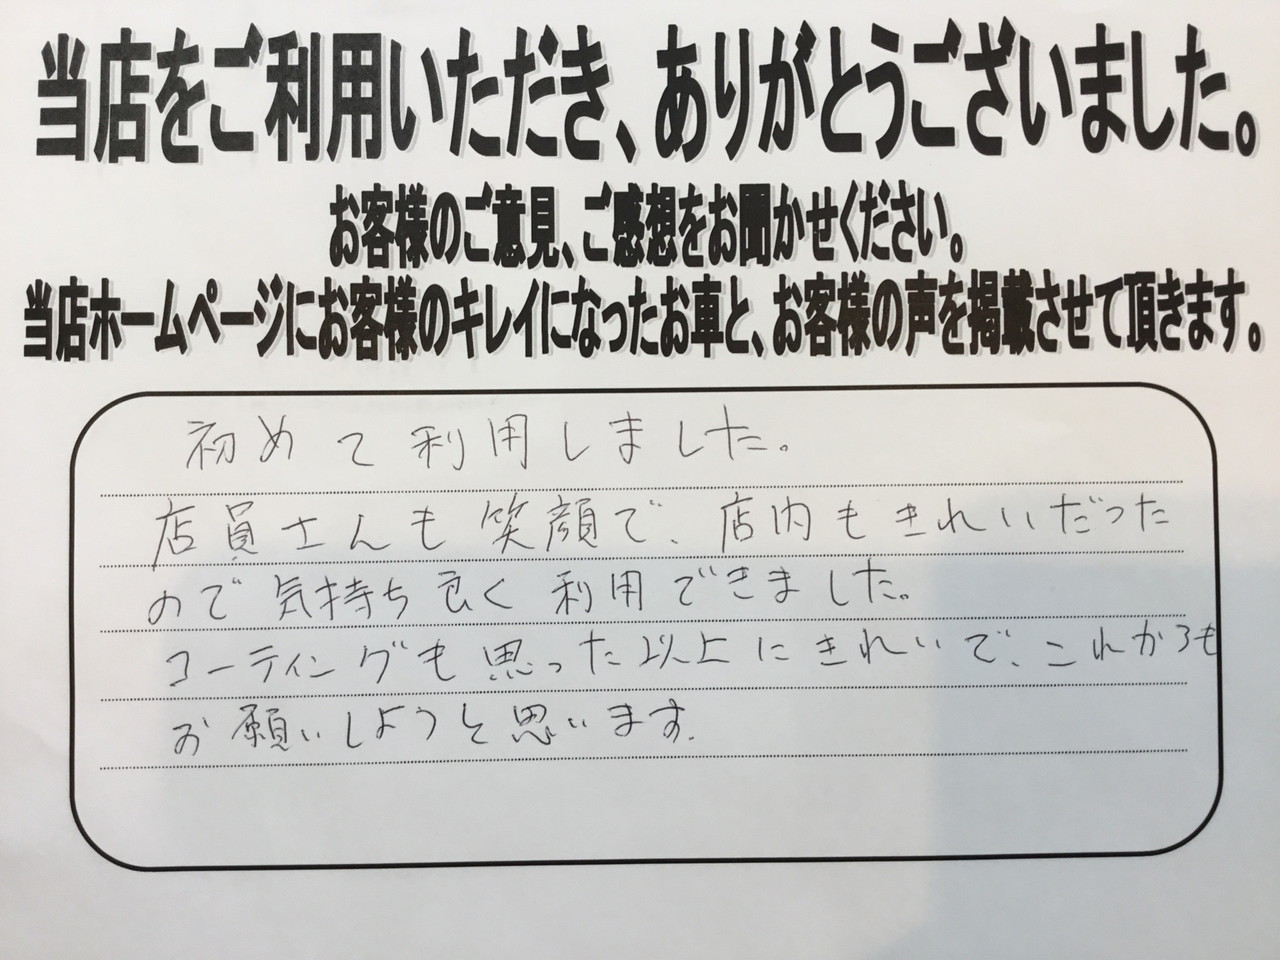 当店をご利用いただき、ありがとうございました。
お客様のご意見、ご感想をお聞かせください。
当店ホームページにお客様のキレイになったお車と、お客様の声を掲載させて頂きます。
初めて利用しました。
店員さんも笑顔で、店内もきれいだった
ので気持ち良く利用できました。
コーティングも思った以上にきれいで、これからも
お願いしようと思います。